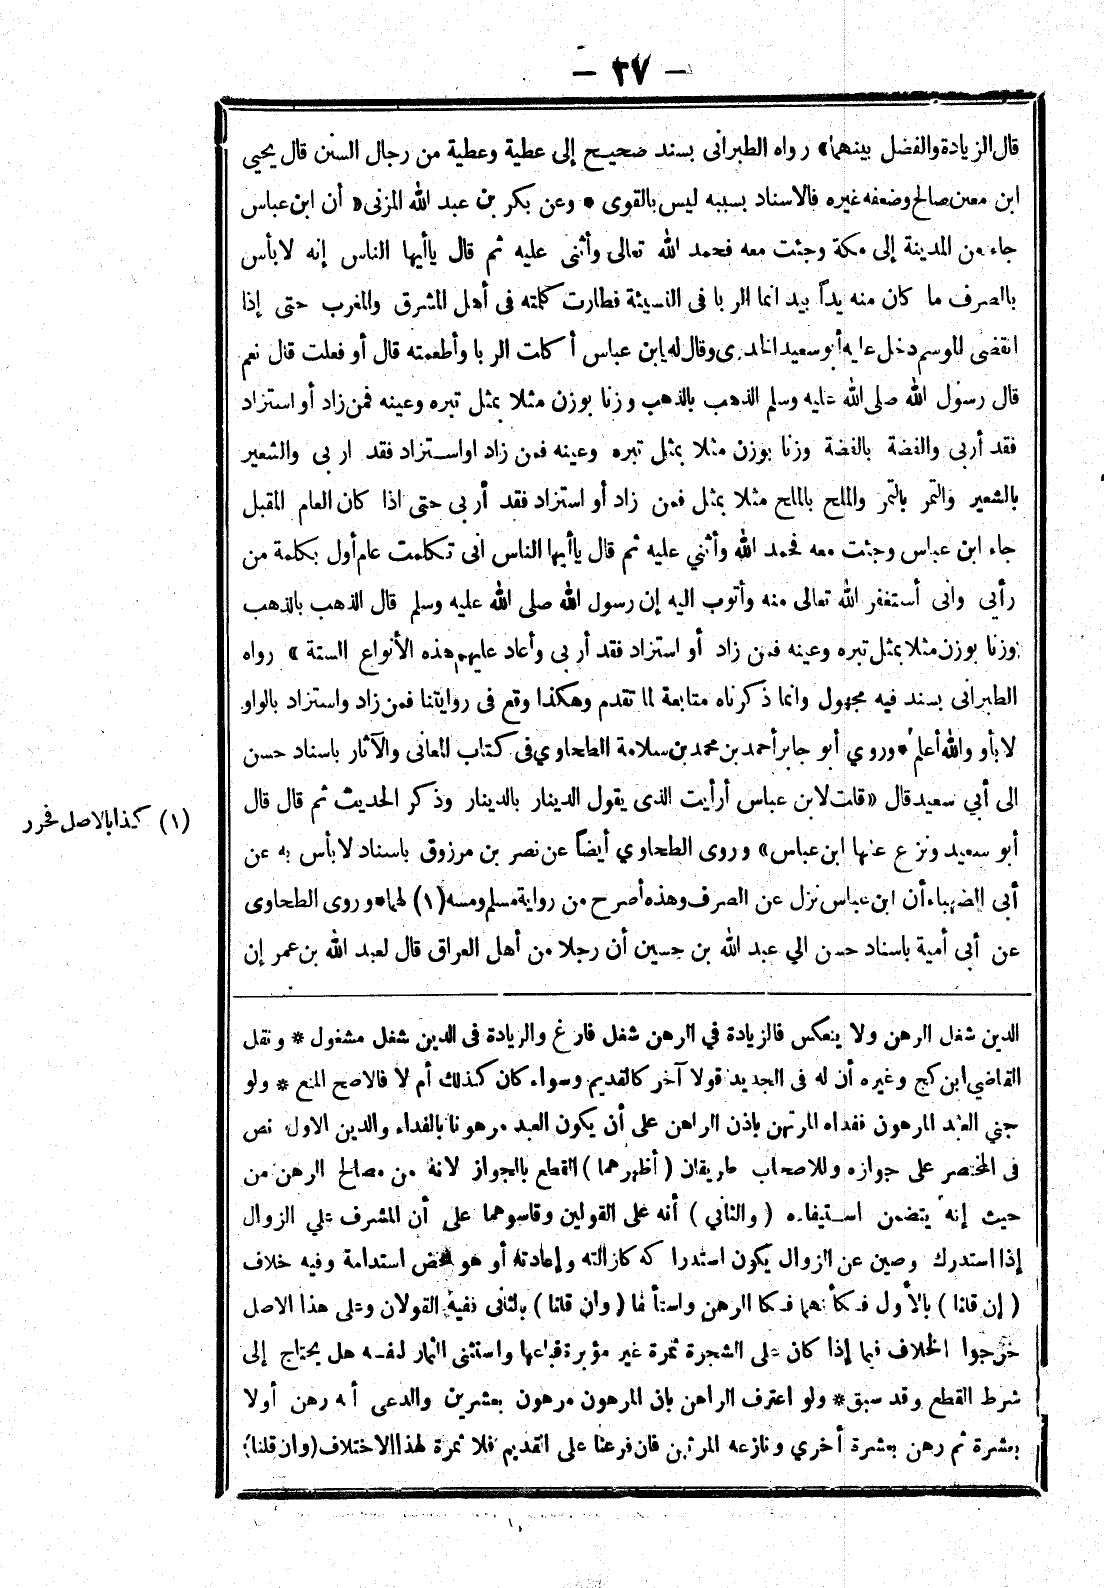 — ٣٧ —
قال الزيادة والفضل بينهما» رواه الطبرانى بسند صحيح إلى عطية وعطية من رجال السنن قال يحيي
ابن معين صالح وضعفه غيره فالاسناد بسببه ليس بالقوى * وعن بكر بن عبد الله المزنى « أن ابن عباس
جاء من المدينة إلى مكة وجئت معه فحمد الله تعالى وأثنى عليه ثم قال ياأيها الناس إنه لا بأس
بالصرف ما كان منه يداً بيد انما الربا فى النسيئة فطارت كلمته فى أهل المشرق والمغرب حتى إذا
انقضى الموسم دخل عليه أبو سعيد الخدرى وقال له يابن عباس أكلت الربا وأطعمته قال أو فعلت قال نعم
قال رسول الله صلى الله عليه وسلم الذهب بالذهب وزنا بوزن مثلا بمثل تبره وعينه فمن زاد أو استزاد
فقد أربى والفضة بالفضة وزنا بوزن مثلا بمثل تبره وعينه فمن زاد او استزاد فقد اربى والشعير
بالشعير والتمر بالتمر والملح بالملح مثلا بمثل فمن زاد أو استزاد فقد أربى حتى اذا كان العام المقبل
جاء ابن عباس وجئت معه فحمد الله وأثني عليه ثم قال ياأيها الناس انى تكلمت عام أول بكلمة من
رأيى وانى أستغفر الله تعالى منه وأتوب اليه إن رسول الله صلى الله عليه وسلم قال الذهب بالذهب
وزنا بوزن مثلا بمثل تبره وعينه فمن زاد أو استزاد فقد أربى وأعاد عليهم هذه الأنواع الستة » رواه
الطبرانى بسند فيه مجهول وانما ذكرناه متابعة لما تقدم وهكذا وقع فى روايتنا فمن زاد واستزاد بالواو
لا بأو والله أعلم * وروي أبو جابر أحمد بن محمد بن سلامة الطحاوي فى كتاب المعانى والآثار باسناد حسن
الى أبي سعيد قال « قلت لابن عباس أرأيت الذى يقول الدينار بالدينار وذكر الحديث ثم قال قال
أبو سعيد ونزع عنها ابن عباس» وروى الطحاوي أيضاً عن نصر بن مرزوق باسناد لا بأس به عن
أبى الصهباء أن ابن عباس نزل عن الصرف وهذه أصرح من رواية مسلم ومسه (١) لهما * وروى الطحاوى
عن أبى أمية باسناد حسن الي عبد الله بن حسين أن رجلا من أهل العراق قال لعبد الله بن عمر إن
(١) كذا بالاصل فحرر
الدين شغل الرهن ولا ينعكس فالزيادة في الرهن شغل فارغ والزيادة فى الدين شغل مشغول * ونقل
القاضي ابن كج وغيره أن له فى الجديد قولا آخر كالقديم وسواء كان كذلك أم لا فالاصح المنع * ولو
جني العبد المرهون ففداه المرتهن باذن الراهن على أن يكون العبد مرهونا بالفداء والدين الاول نص
فى المختصر على جوازه وللاصحاب طريقان ( أظهرهما ) القطع بالجواز لانه من مصالح الرهن من
حيث إنه يتضمن استيفاءه ( والثاني ) أنه على القولين وقاسوهما على أن المشرف علي الزوال
إذا استدرك وصين عن الزوال يكون استدراكه كازالته وإعادته أو هو محض استدامة وفيه خلاف
( إن قلنا ) بالأول فكأنهما فكا الرهن واستأنفا ( وان قلنا ) بالثانى ففيه القولان وعلى هذا الاصل
خرجوا الخلاف فيما إذا كان على الشجرة ثمرة غير مؤبرة فباعها واستثنى الثمار لنفسه هل يحتاج إلى
شرط القطع وقد سبق * ولو اعترف الراهن بان المرهون مرهون بعشرين وادعى أنه رهن أولا
بعشرة ثم رهن بعشرة أخري ونازعه المرتهن فان فرعنا على القديم فلا ثمرة لهذا الاختلاف (وان قلنا)